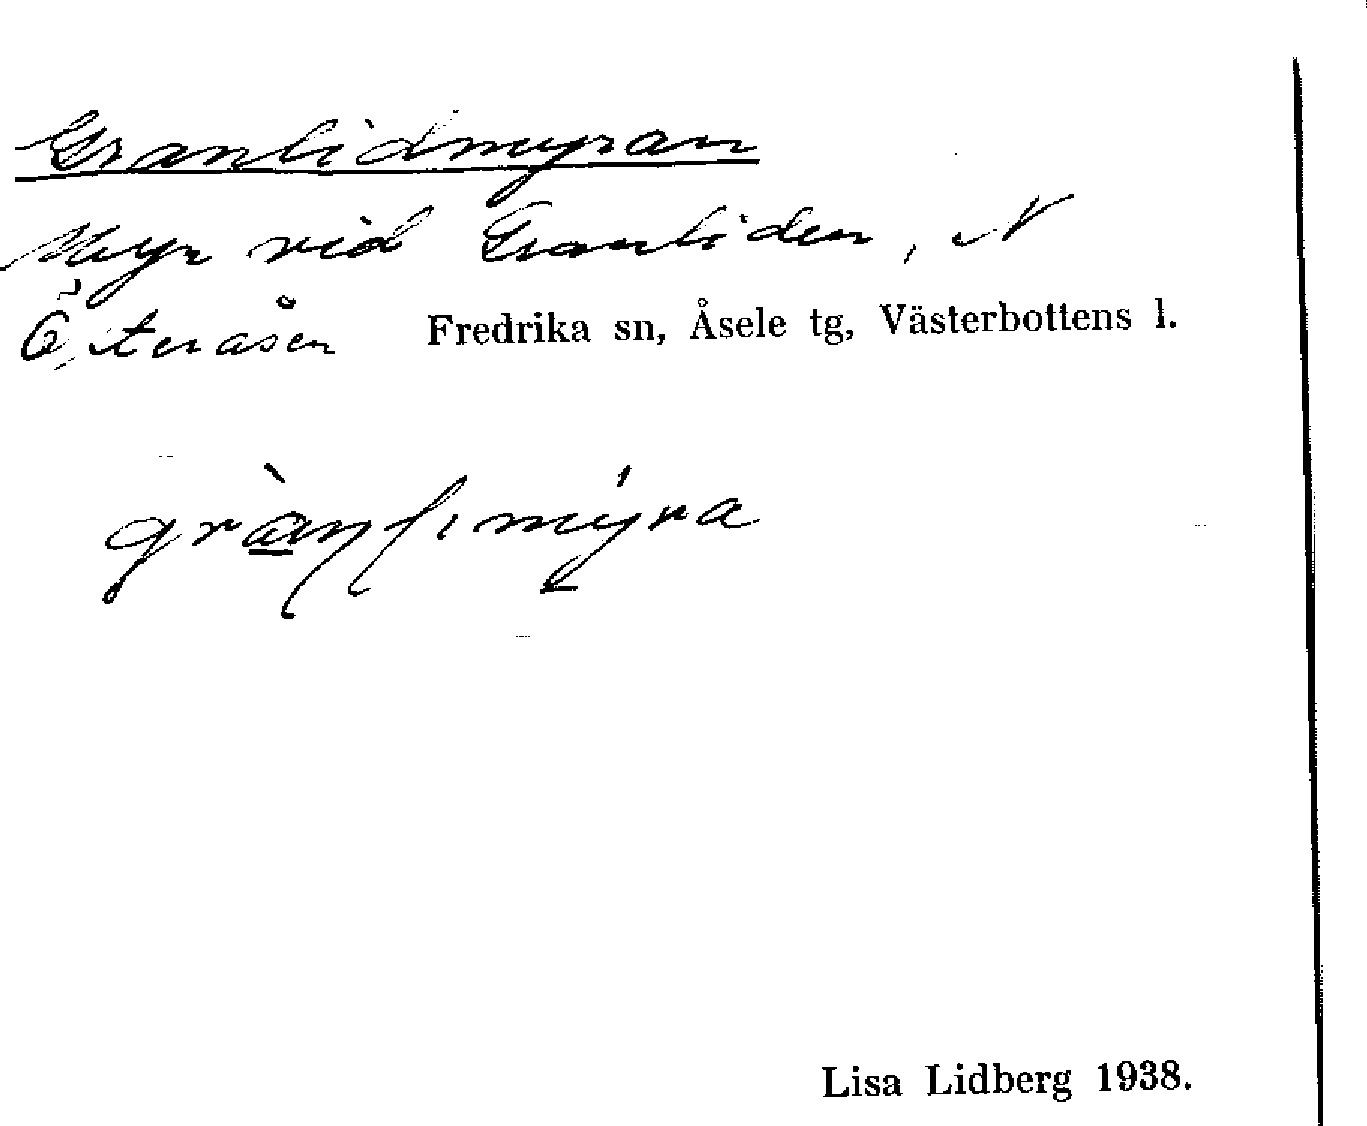 Granlidmyran
Myr vid Granliden, N
Österåsen Fredrika sn, Åsele tg, Västerbottens l.
Lisa Lidberg 1938.